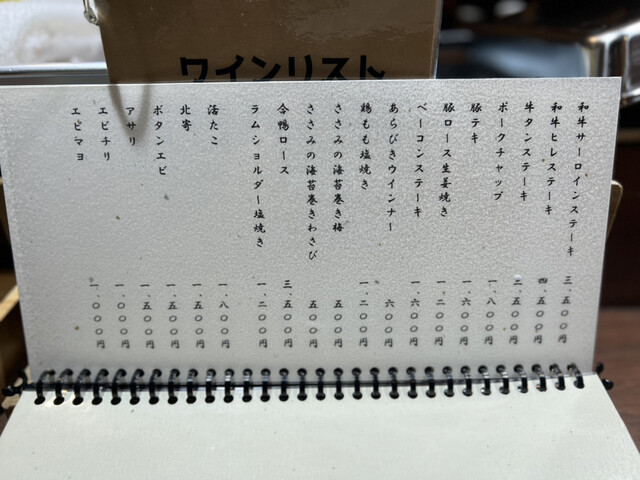 ワインリスト
和牛サーロインステーキ 三、五〇〇円
和牛ヒレステーキ 四、五〇〇円
牛タンステーキ 二、五〇〇円
ポークチャップ 一、八〇〇円
豚テキ 一、六〇〇円
豚ロース生姜焼き 一、二〇〇円
ベーコンステーキ 一、六〇〇円
あらびきウインナー 六〇〇円
鶏もも塩焼き 一、二〇〇円
ささみの海苔巻き梅 五〇〇円
ささみの海苔巻きわさび 五〇〇円
合鴨ロース 三、五〇〇円
ラムショルダー塩焼き 一、二〇〇円
活たこ 一、八〇〇円
北寄 一、五〇〇円
ボタンエビ 一、五〇〇円
アサリ 一、五〇〇円
エビチリ 一、〇〇〇円
エビマヨ 一、〇〇〇円